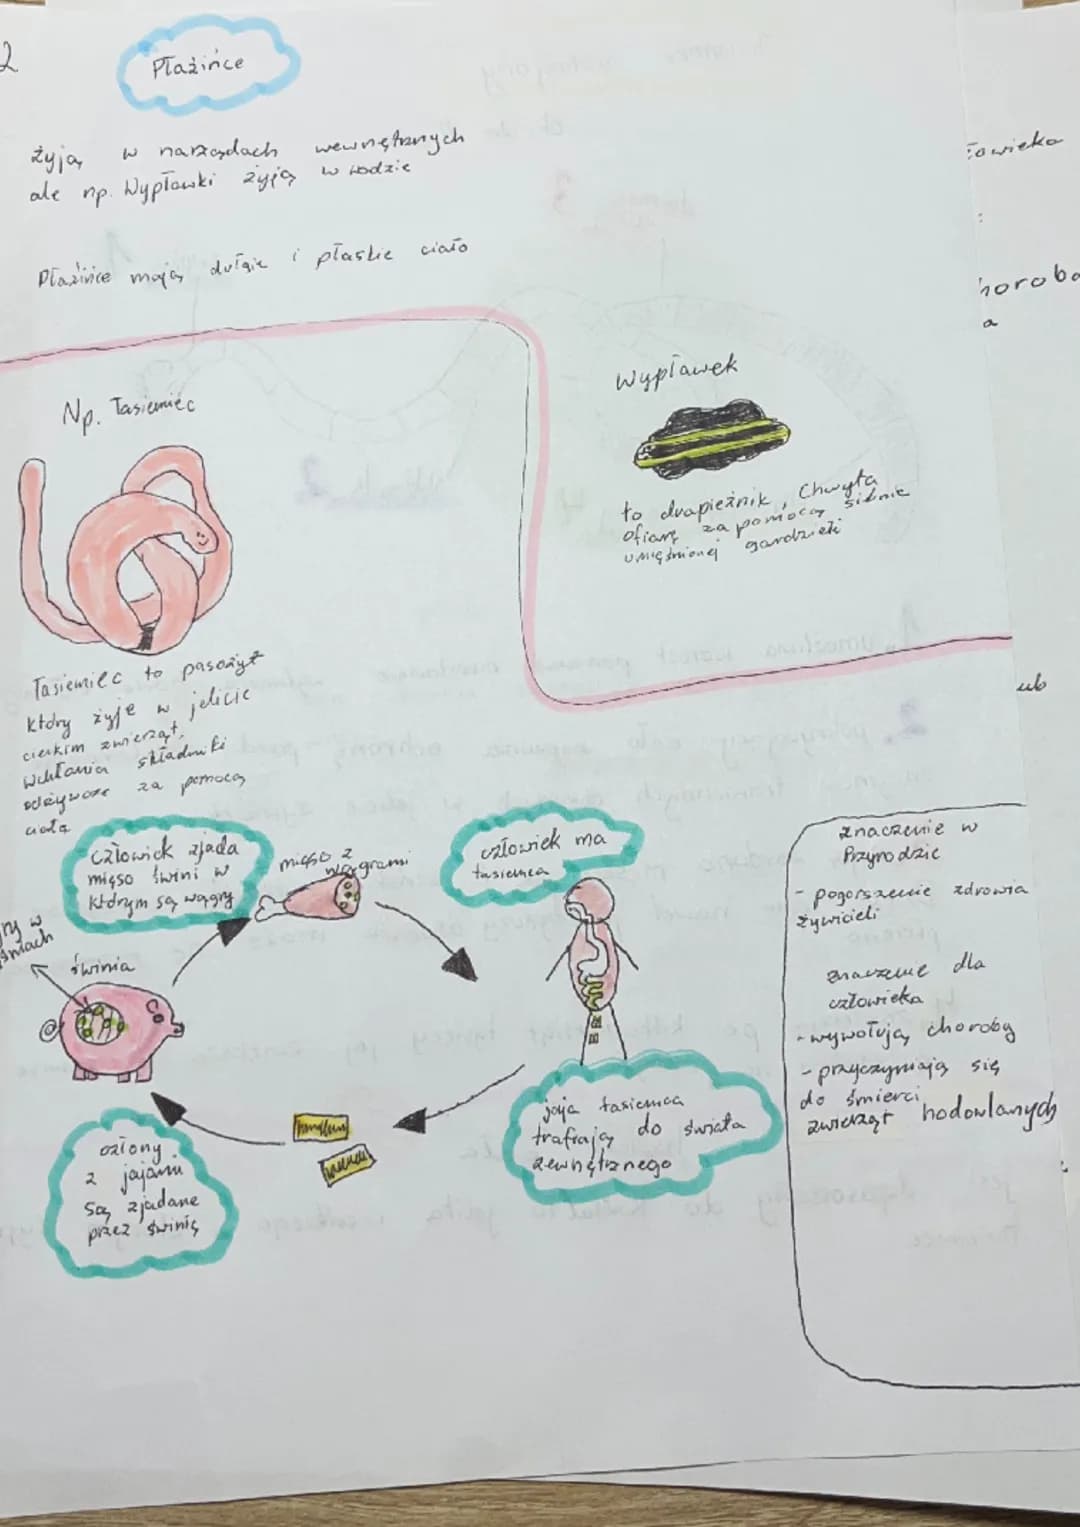 2
Płazińce
żyją w narządach wewnętrznych
ale np. Wypławki żyją w wodzie
Płazińce mają długie i płaskie ciało
Np. Tasiemiec
Tasiemiec to pasożyt
który żyje w jelicie
cienkim zwierząt,
wchłania składniki
odżywcze za pomocą
ciała
Wypławek
to drapieżnik, Chwyta
ofiarę za pomocą silnie
umięśnionej gardzieli
człowiek zjada
mięso świni w
którym są wągry
mięso z
wągrami
człowiek ma
tasiemca
świnia
jaja tasiemca
trafiają do świata
zewnętrznego
człony
z jajami
są zjadane
przez świnię
znaczenie w
Przyrodzie
- pogorszenie zdrowia
żywicieli
znaczenie dla
człowieka
- wywołują choroby
- przyczyniają się
do śmierci
zwierząt hodowlanych